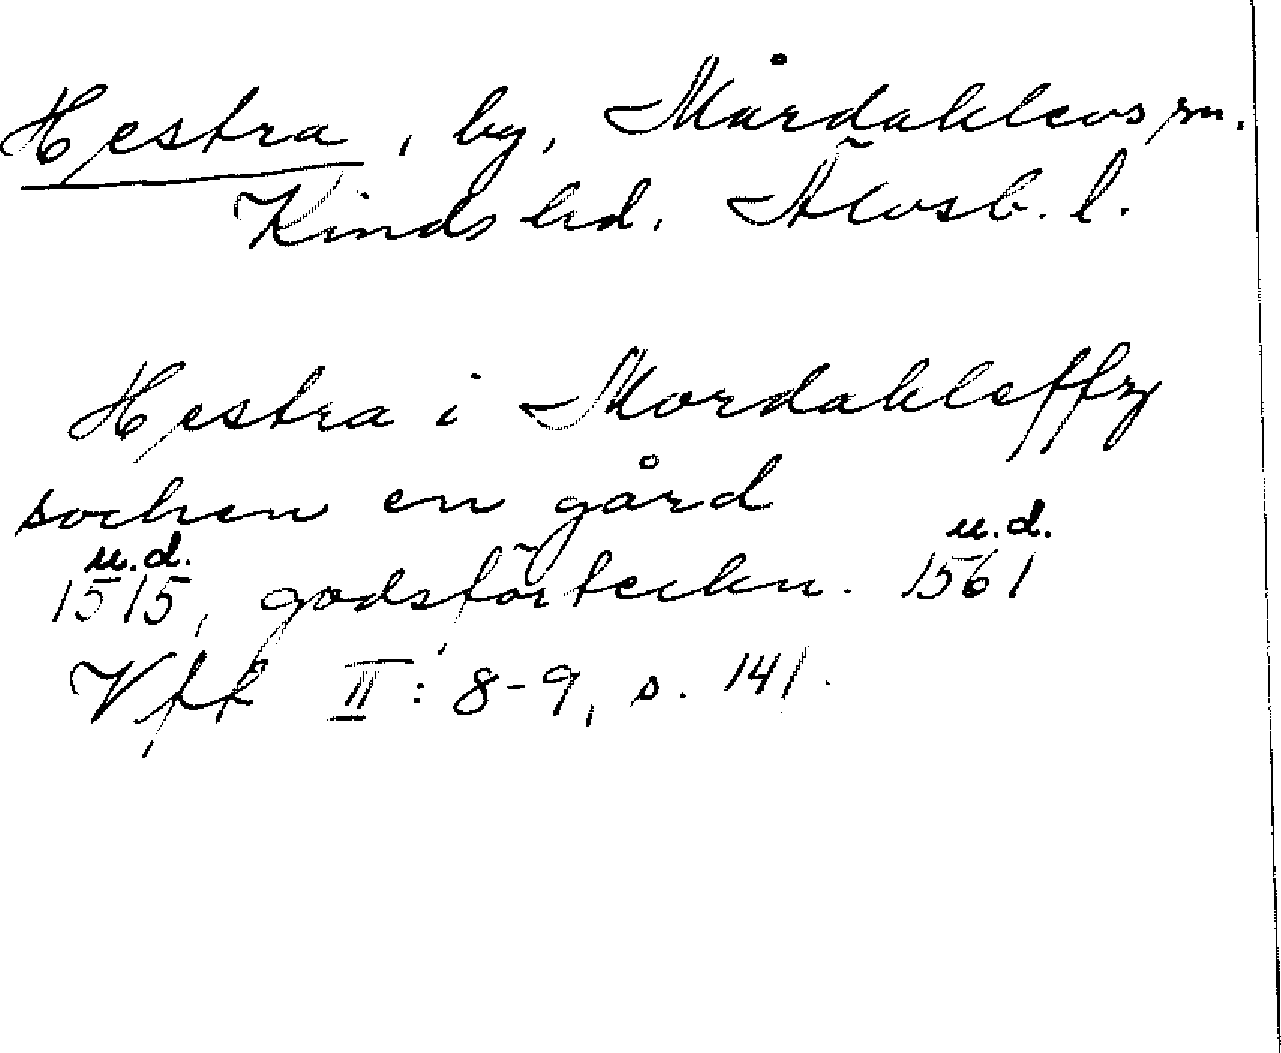 Hestra, by, Mårdaklevs sn.
Kinds hd. Älvsb. l.
Hestra i Mordakleffz
sochen en gård
u.d. u.d.
1515, godsförteckn. 1561
Vfk II: 8-9, s. 141.